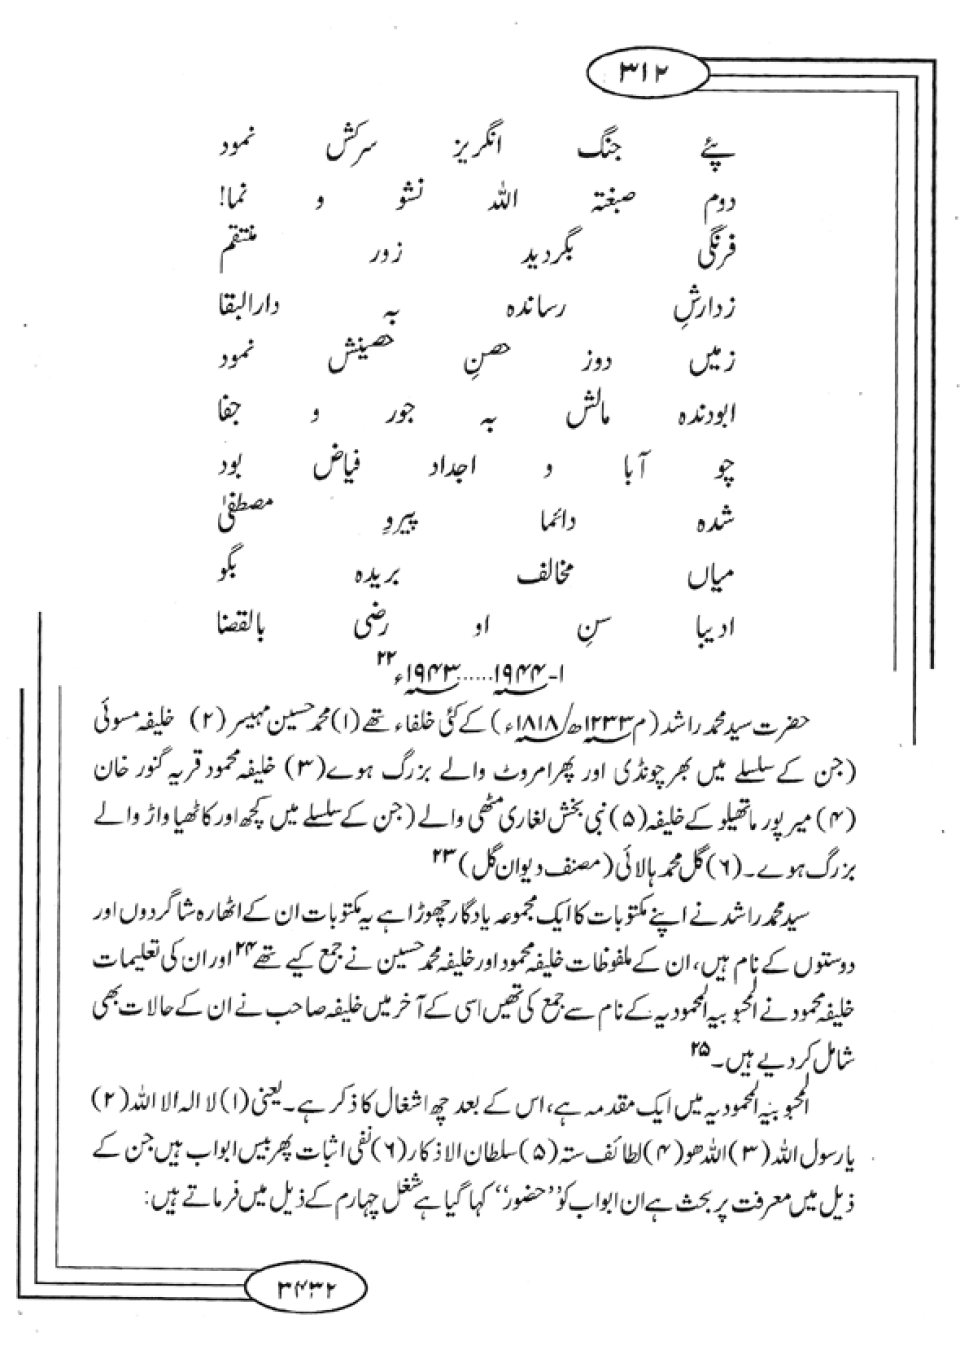 ۳۱۲
پئے جنگ انگریز سرکش نمود
دوم صبغتہ اللہ نشو و نما!
فرنگی بگردید زور منتقم
زدارشِ رساندہ بہ دارالبقا
زمیں دوز حصنِ حصینش نمود
ابودندہ مالش بہ جور و جفا
چو آبا و اجداد فیاض بود
شدہ دائما پیروِ مصطفیٰ
میاں مخالف بریدہ بگو
ادیبا سنِ او رضی بالقضا
۱-۱۹۴۴......۱۹۴۳ء۲۲
حضرت سید محمد راشد (م ۱۲۳۳ھ/۱۸۱۸ء) کے کئی خلفاء تھے (۱) محمد حسین مہیسر (۲) خلیفہ مسوئی
(جن کے سلسلے میں بھرچونڈی اور پھر امروٹ والے بزرگ ہوے (۳) خلیفہ محمود قریہ گنور خان
(۴) میر پور ماتھیلو کے خلیفہ (۵) نبی بخش لغاری مٹھی والے (جن کے سلسلے میں کچھ اور کاٹھیاواڑ والے
بزرگ ہوے۔ (۶) گل محمد ہالائی (مصنف دیوان گل) ۲۳
سید محمد راشد نے اپنے مکتوبات کا ایک مجموعہ یادگار چھوڑا ہے یہ مکتوبات ان کے اٹھارہ شاگردوں اور
دوستوں کے نام ہیں، ان کے ملفوظات خلیفہ محمود اور خلیفہ محمد حسین نے جمع کیے تھے۲۴ اور ان کی تعلیمات
خلیفہ محمود نے المحبوبیہ المحمودیہ کے نام سے جمع کی تھیں اسی کے آخر میں خلیفہ صاحب نے ان کے حالات بھی
شامل کر دیے ہیں۔۲۵
المحبوبیہ المحمودیہ میں ایک مقدمہ ہے، اس کے بعد چھ اشغال کا ذکر ہے۔ یعنی (۱) لا الہ الا اللہ (۲)
یا رسول اللہ (۳) اللہ ھو (۴) لطائف ستہ (۵) سلطان الاذکار (۶) نفی اثبات پھر بیس ابواب ہیں جن کے
ذیل میں معرفت پر بحث ہے ان ابواب کو ’’حضور‘‘ کہا گیا ہے شغل چہارم کے ذیل میں فرماتے ہیں:
۳۴۳۲